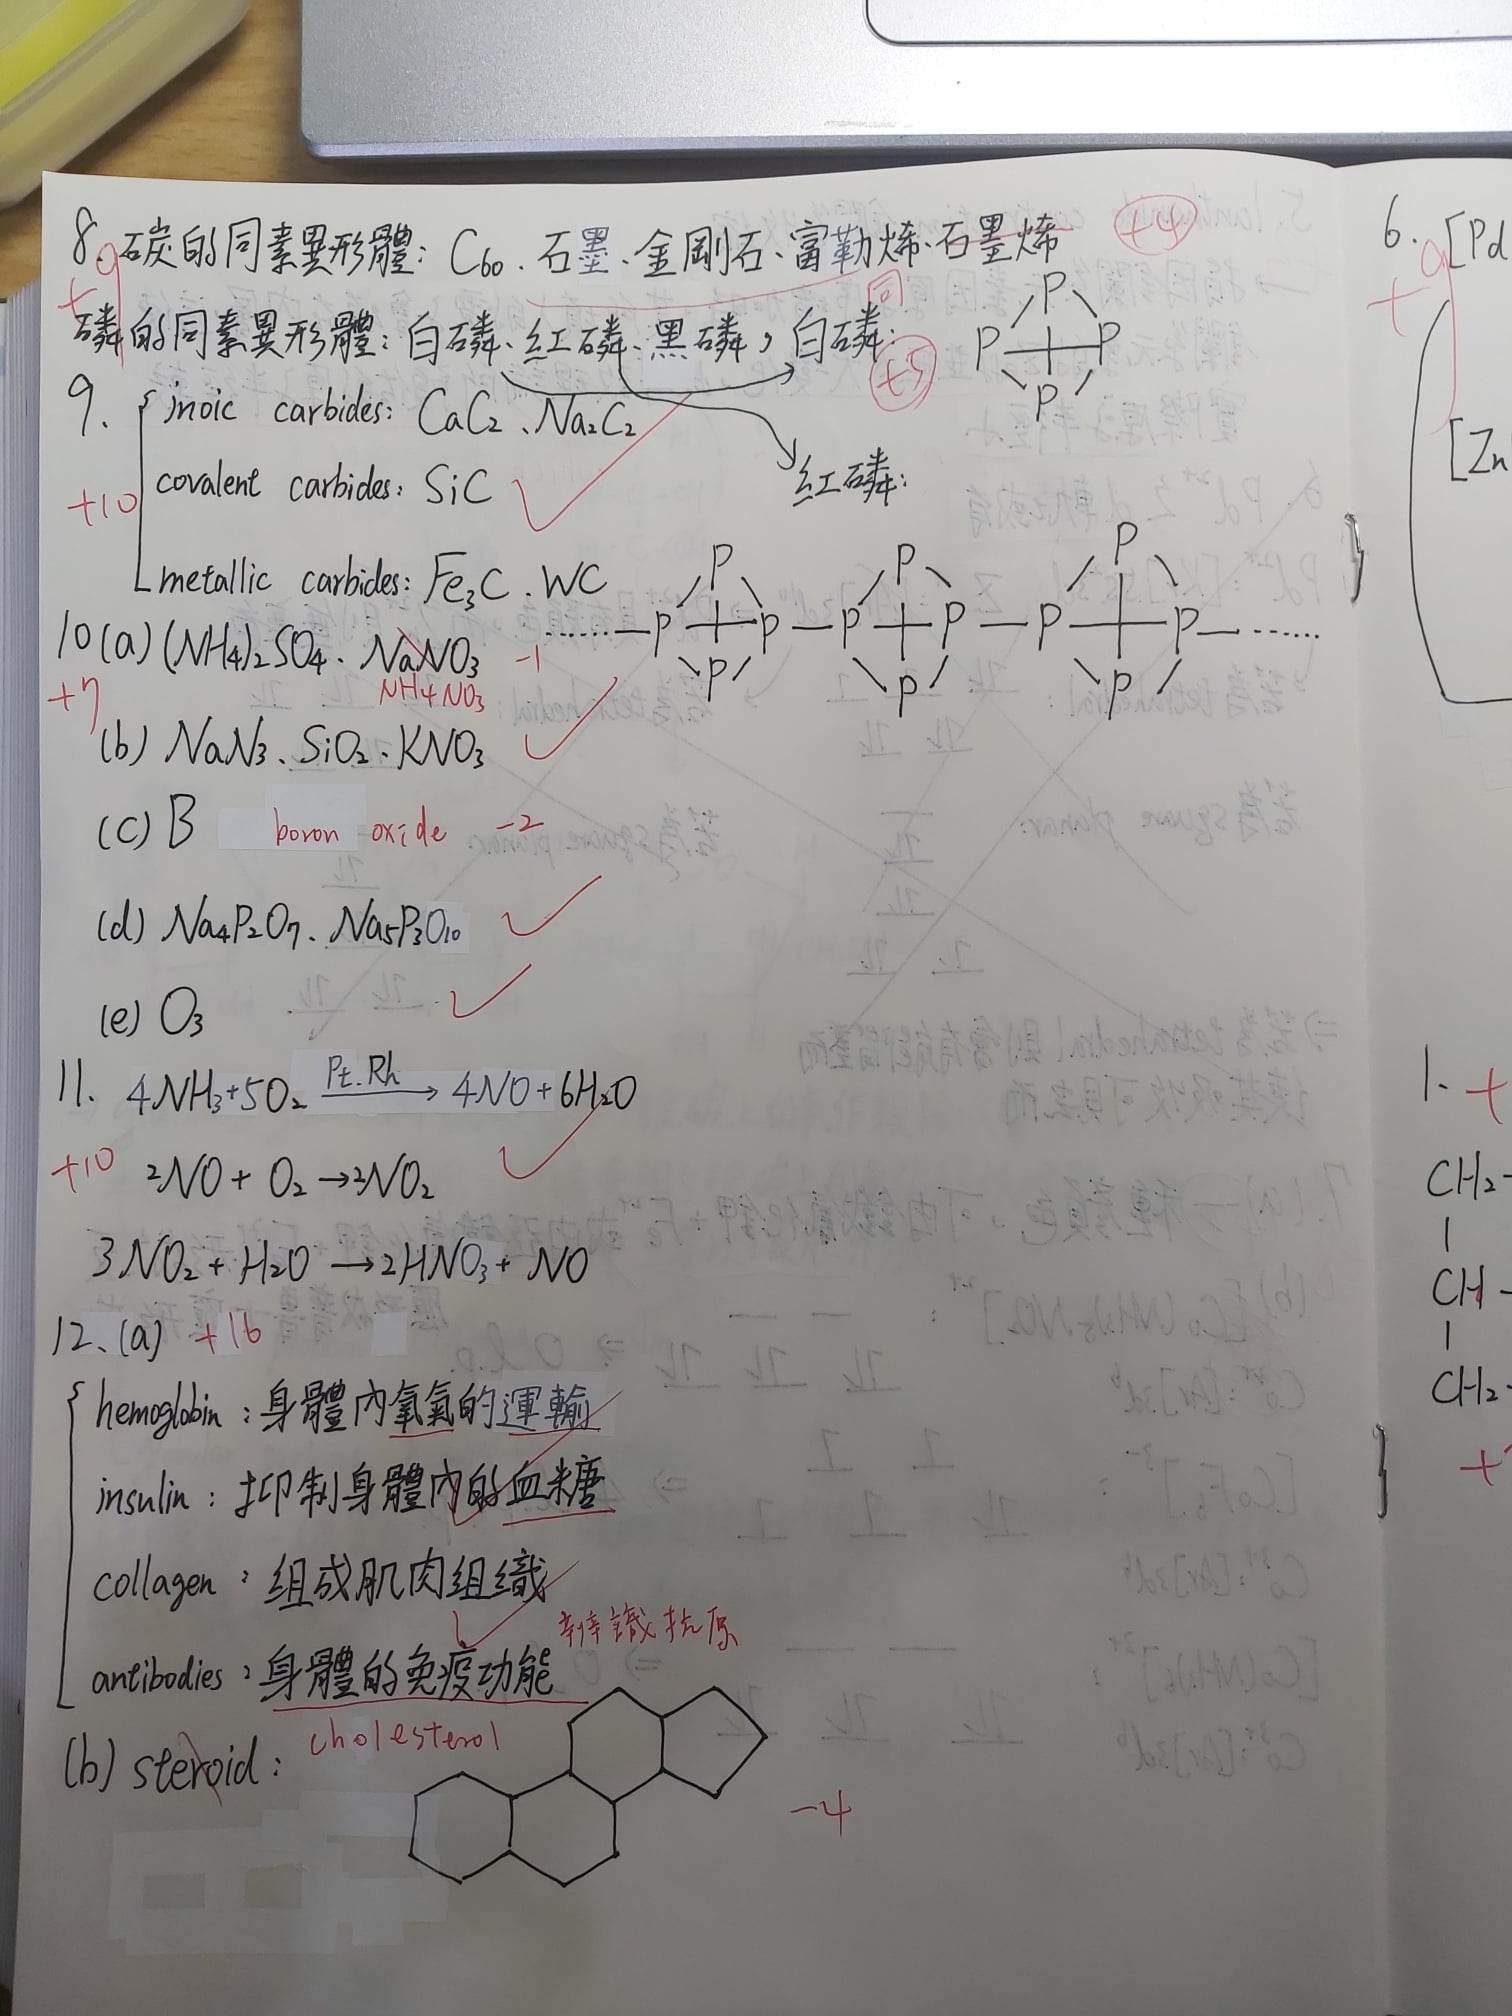 8. 碳的同素異形體: C60、石墨、金剛石、富勒烯、石墨烯 +4
+9
同
磷的同素異形體: 白磷、紅磷、黑磷, 白磷: +5
P
P P
P
9. inoic carbides: CaC2、Na2C2
+10 covalent carbides: SiC
紅磷:
metallic carbides: Fe3C、WC
P P P
······—P P—P P—P P—······
P P P
10 (a) (NH4)2SO4、NaNO3 -1
+7 NH4NO3
(b) NaN3、SiO2、KNO3
(c) B boron oxide -2
(d) Na4P2O7、Na5P3O10
(e) O3
11. 4NH3+5O2 Pt.Rh → 4NO+6H2O
+10 2NO + O2 → 2NO2
3NO2 + H2O → 2HNO3 + NO
12. (a) +16
hemoglobin: 身體內氧氣的運輸
insulin: 抑制身體內的血糖
collagen: 組成肌肉組織
辨識抗原
antibodies: 身體的免疫功能
(b) steroid: cholesterol
-4
6. [Pd
+9
[Zn
1. +
CH2-
CH-
CH2-